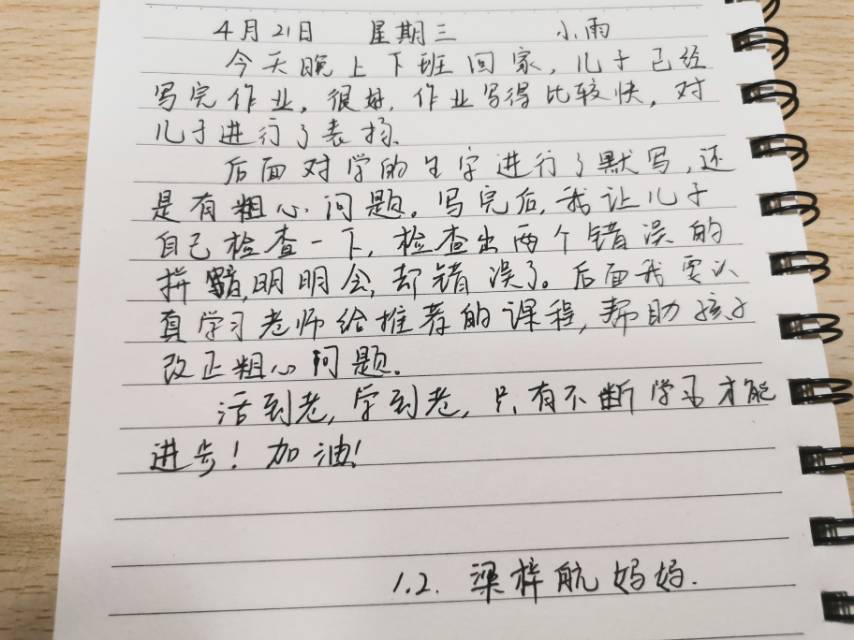 4月21日 星期三 小雨
今天晚上下班回家，儿子已经
写完作业，很好，作业写得比较快，对
儿子进行了表扬。
后面对学的生字进行了默写，还
是有粗心问题。写完后，我让儿子
自己检查一下，检查出两个错误的
拼，明明会，却错误了。后面我要认
真学习老师给推荐的课程，帮助孩子
改正粗心问题。
活到老，学到老，只有不断学习才能
进步！加油！
1.2. 梁梓航妈妈.